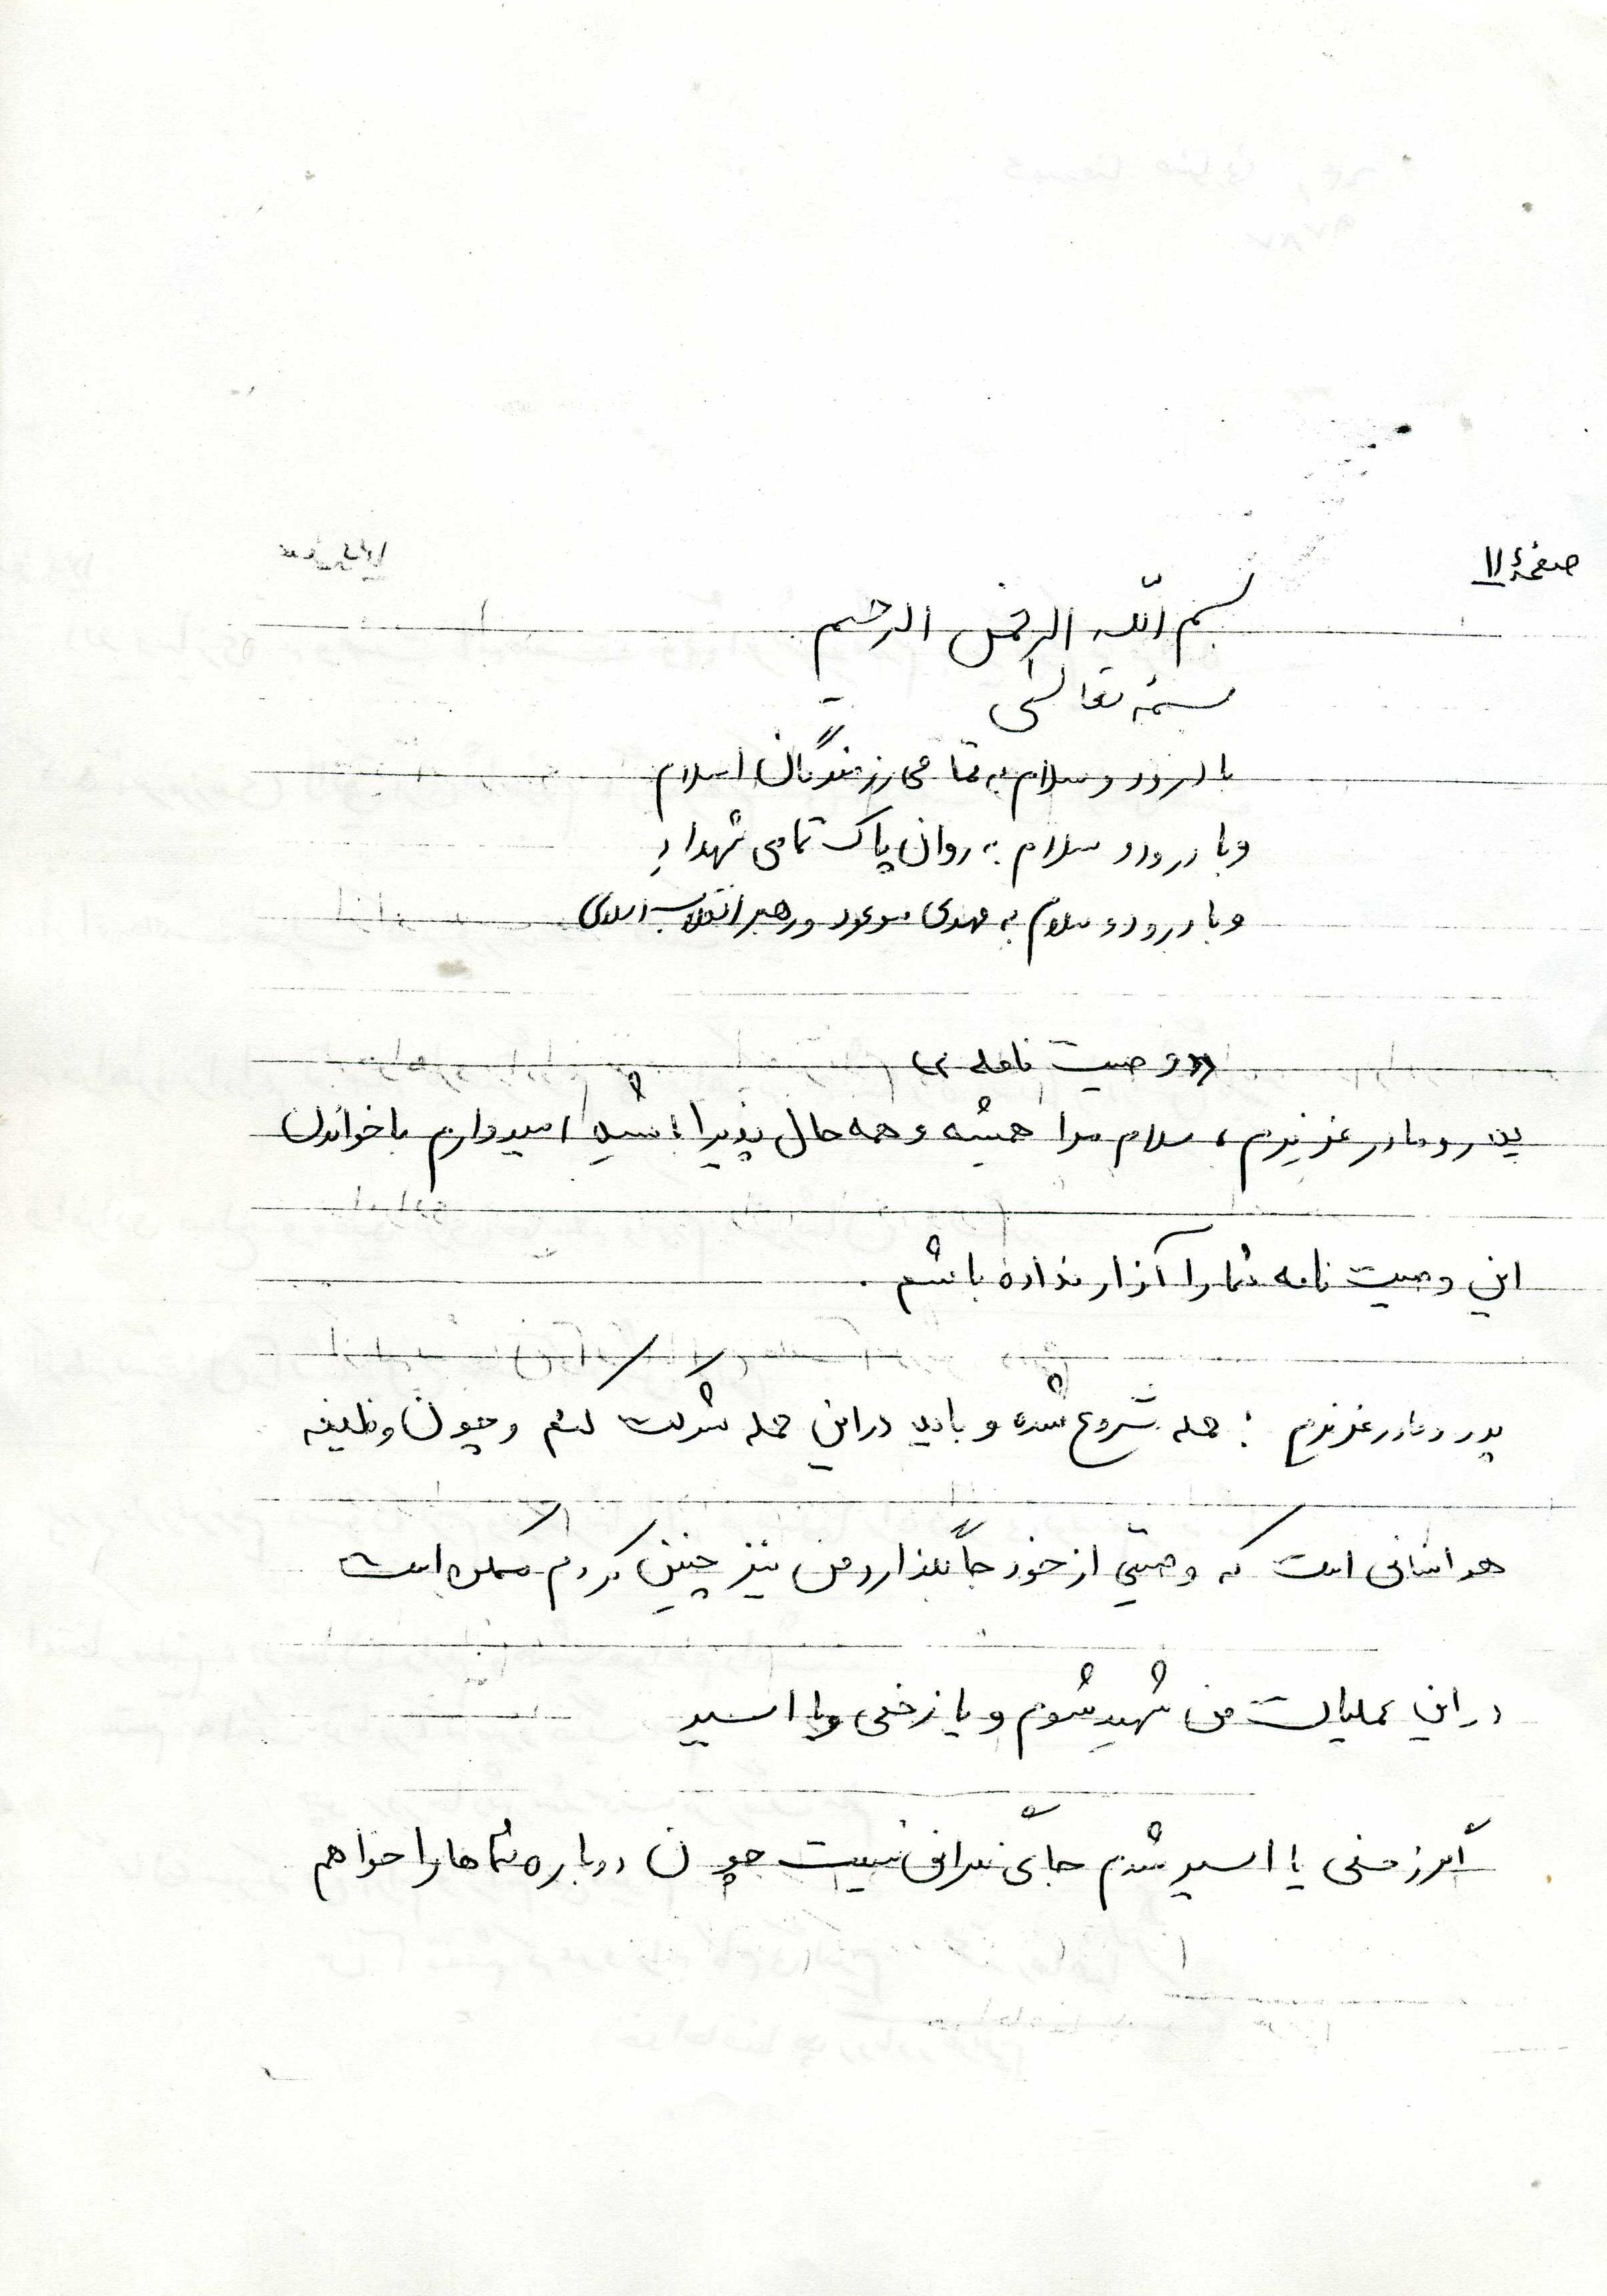 صفحهٔ ۱۱
بسم الله الرحمن الرحیم
بسمه تعالی
با درود و سلام به تمامی رزمندگان اسلام
و با درود و سلام به روان پاک تمامی شهدا
و با درود و سلام به مهدی موعود و رهبر انقلاب اسلامی
«وصیت نامه»
پدر و مادر عزیزم، سلام مرا همیشه و همه حال پذیرا باشید امیدوارم با خواندن
این وصیت نامه شما را آزار نداده باشم.
پدر و مادر عزیزم: حمله شروع شده و باید در این حمله شرکت کنم و چون وظیفه
هر انسانی است که وصیتی از خود جا بگذارد من نیز چنین کردم ممکن است
در این عملیات من شهید شوم و یا زخمی و یا اسیر
اگر زخمی یا اسیر شدم جای نگرانی نیست چون دوباره شماها را خواهم